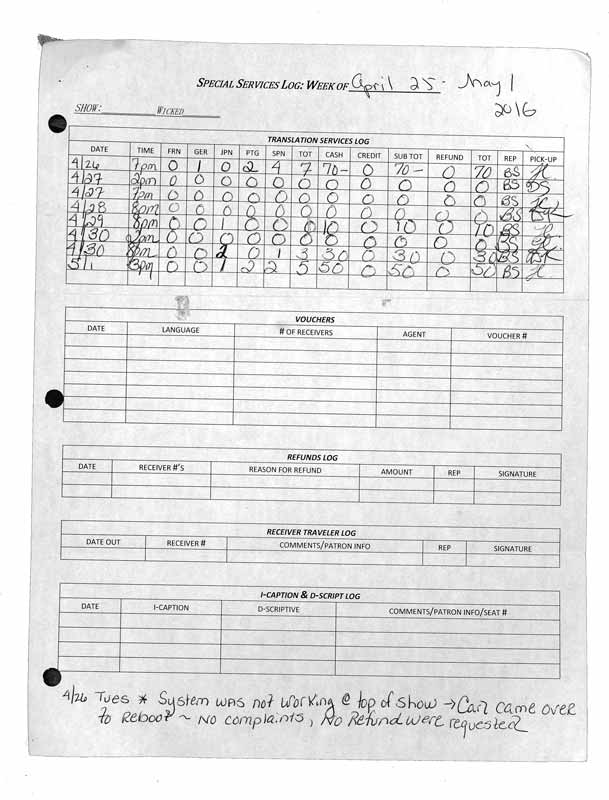 SPECIAL SERVICES LOG: WEEK OF April 25 - May 1
2016
SHOW: WICKED
TRANSLATION SERVICES LOG
DATE TIME FRN GER JPN PTG SPN TOT CASH CREDIT SUB TOT REFUND TOT REP PICK-UP
4/26 7pm 0 1 0 2 4 7 70- 0 70- 0 70 BS
4/27 2pm 0 0 0 0 0 0 0 0 0 0 0 BS BS
4/27 7pm 0 0 0 0 0 0 0 0 0 0 0 BS
4/28 8pm 0 0 0 0 0 0 0 0 0 0 0 BS
4/29 8pm 0 0 1 0 0 10 0 10 0 10 BS
4/30 2pm 0 0 0 0 0 0 0 0 0 0 0 BS
4/30 8pm 0 0 2 0 1 3 30 0 30 0 30 BS
5/1 3pm 0 0 1 2 2 5 50 0 50 0 50 BS
VOUCHERS
DATE LANGUAGE # OF RECEIVERS AGENT VOUCHER #
REFUNDS LOG
DATE RECEIVER #'S REASON FOR REFUND AMOUNT REP SIGNATURE
RECEIVER TRAVELER LOG
DATE OUT RECEIVER # COMMENTS/PATRON INFO REP SIGNATURE
I-CAPTION & D-SCRIPT LOG
DATE I-CAPTION D-SCRIPTIVE COMMENTS/PATRON INFO/SEAT #
4/26 Tues * System was not working @ top of show → Carl came over
to Reboot ~ No complaints, No Refund were requested